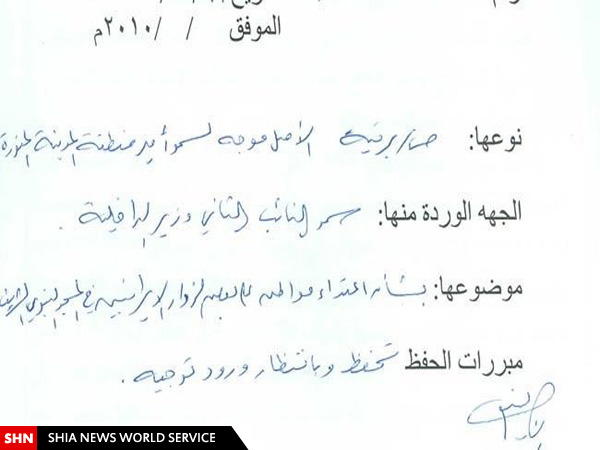 الموفق / / ٢٠١٠م
نوعها: صورة برقية الأصل موجه لسمو أمير منطقة المدينة المنورة
الجهه الوردة منها: سمو النائب الثاني وزير الداخلية .
موضوعها: بشأن اعتداء مواطن على بعض الزوار الايرانيين في المسجد النبوي الشريف
مبررات الحفظ تحفظ وبانتظار ورود توجيه .
SHN SHIA NEWS WORLD SERVICE